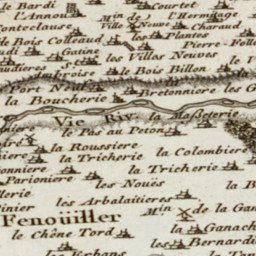 le Bardi
Courtet
l'Annou
Min de
l'Hermitage
Ville Neuve
Charaud
Conteclause
les Plantes
le Bois Colleaud
Pierre
udi
Gatine
les Villes Neuves
St
Ambroise
le Bois Billon
Port Neuf
Bretonniere
les G
la Boucherie
Vie Riv.
la Masseterie
le Pas au Peton
la Roussiere
la Colombiere
la Tricherie
la Tricherie
Parioniere
les Nouës
la B
les Arbalaitieres
Min
de la Gan
Fenoüiller
le Chêne Tord
la Ganach
les Bernardi
les Erbans